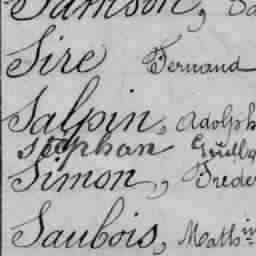 Samson,
Sire Fernand
Salpin, Adolph
Stephan Guill
Simon, Freder
Saubois, Math.in